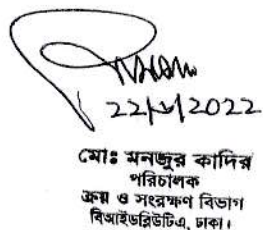 মোঃ মনজুর কাদির
পরিচালক
ক্রয় ও সংরক্ষণ বিভাগ
বিআইডব্লিউটিএ, ঢাকা।